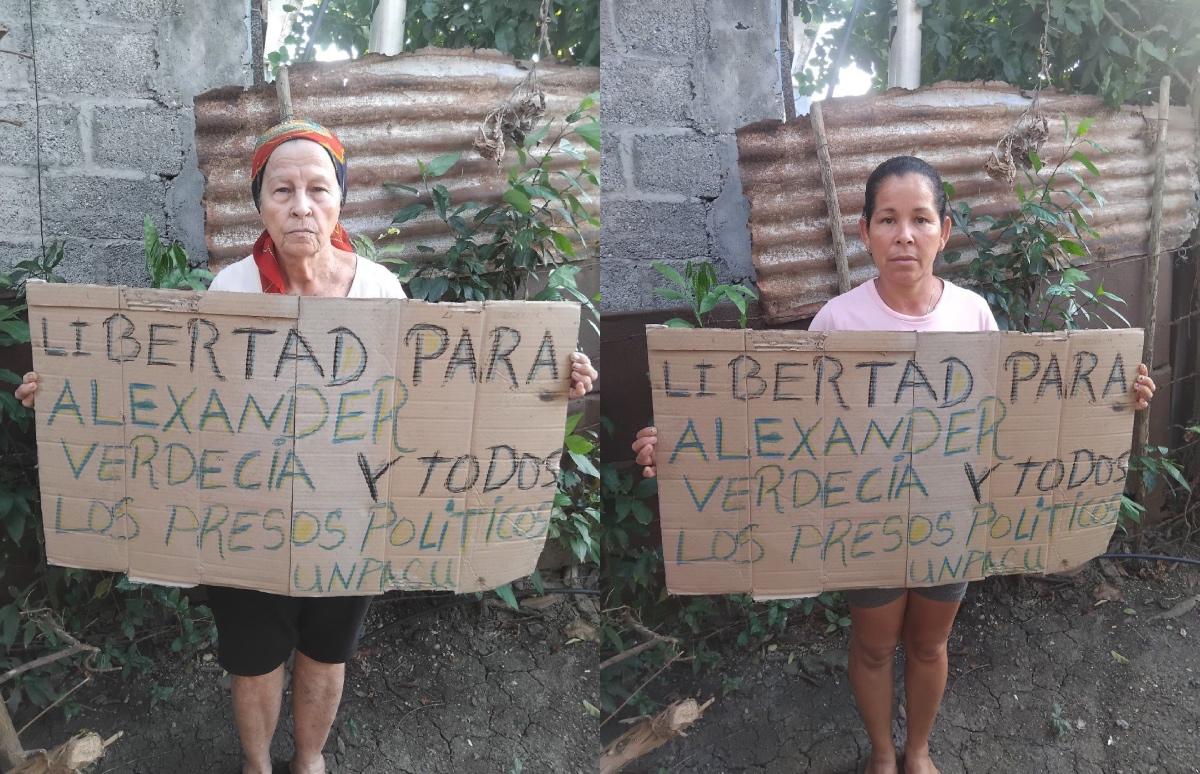 LIBERTAD PARA
ALEXANDER
VERDECÍA Y TODOS
LOS PRESOS POLÍTICOS
UNPACU
LIBERTAD PARA
ALEXANDER
VERDECÍA Y TODOS
LOS PRESOS POLÍTICOS
UNPACU